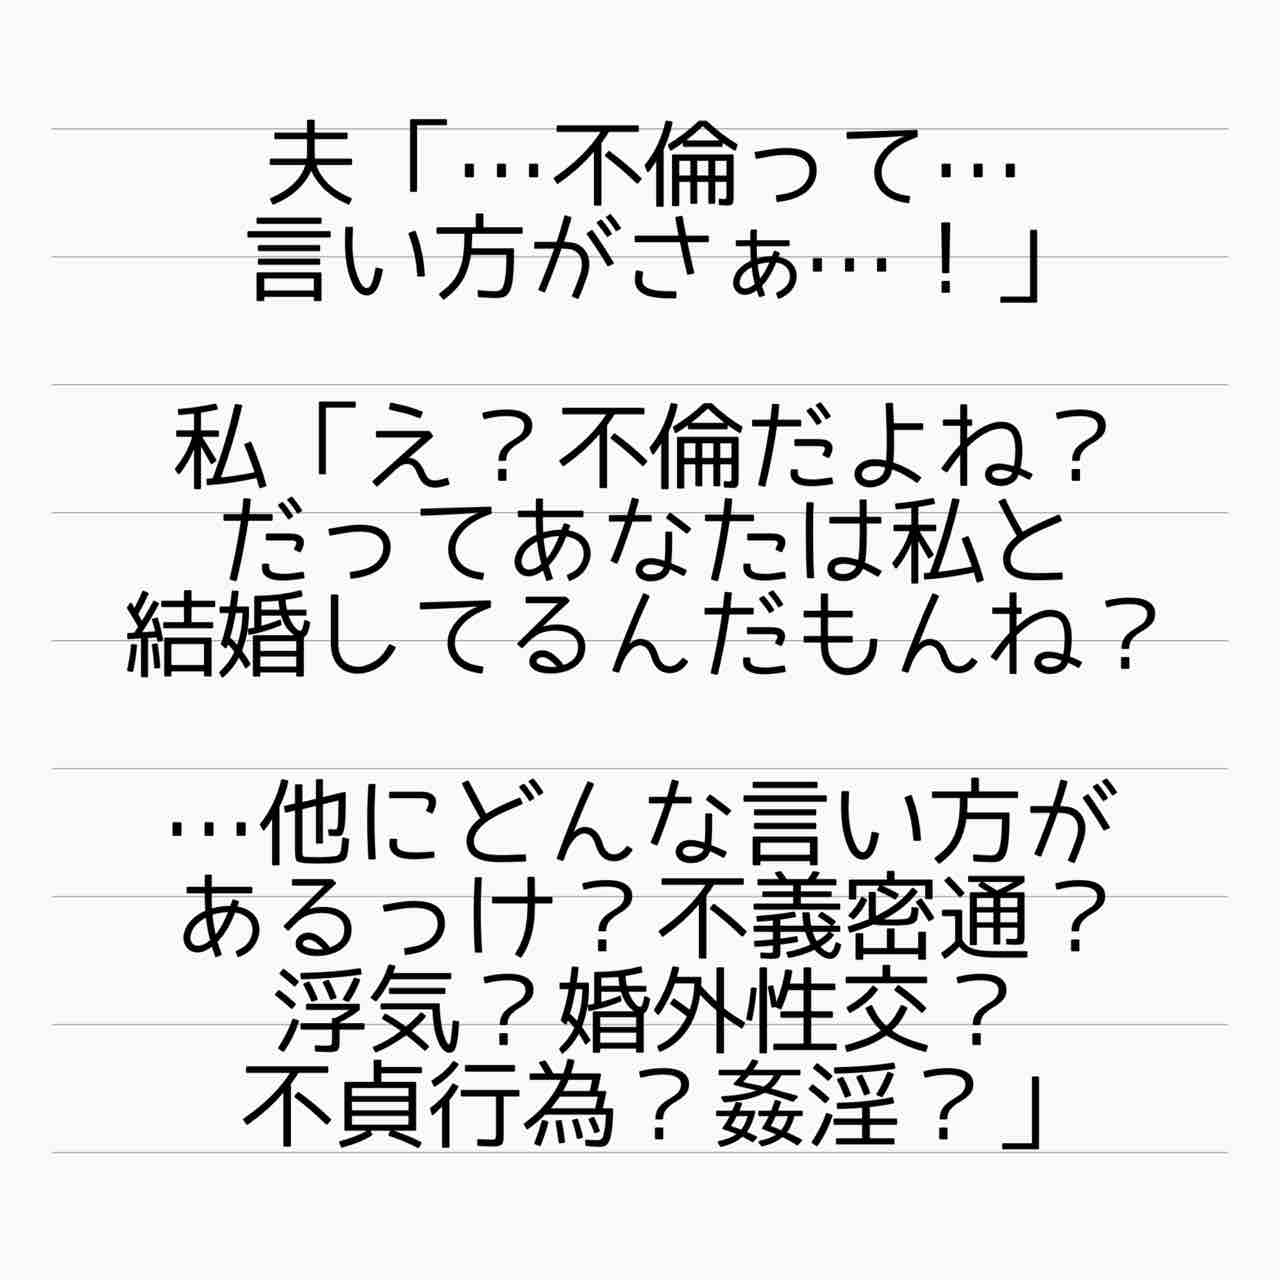 夫「…不倫って…
言い方がさぁ…！」
私「え？不倫だよね？
だってあなたは私と
結婚してるんだもんね？
…他にどんな言い方が
あるっけ？不義密通？
浮気？婚外性交？
不貞行為？姦淫？」